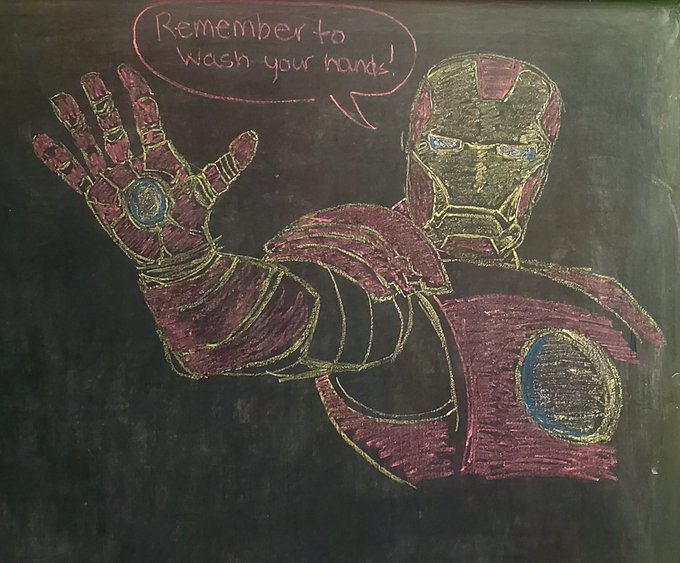 Remember to
Wash your hands!